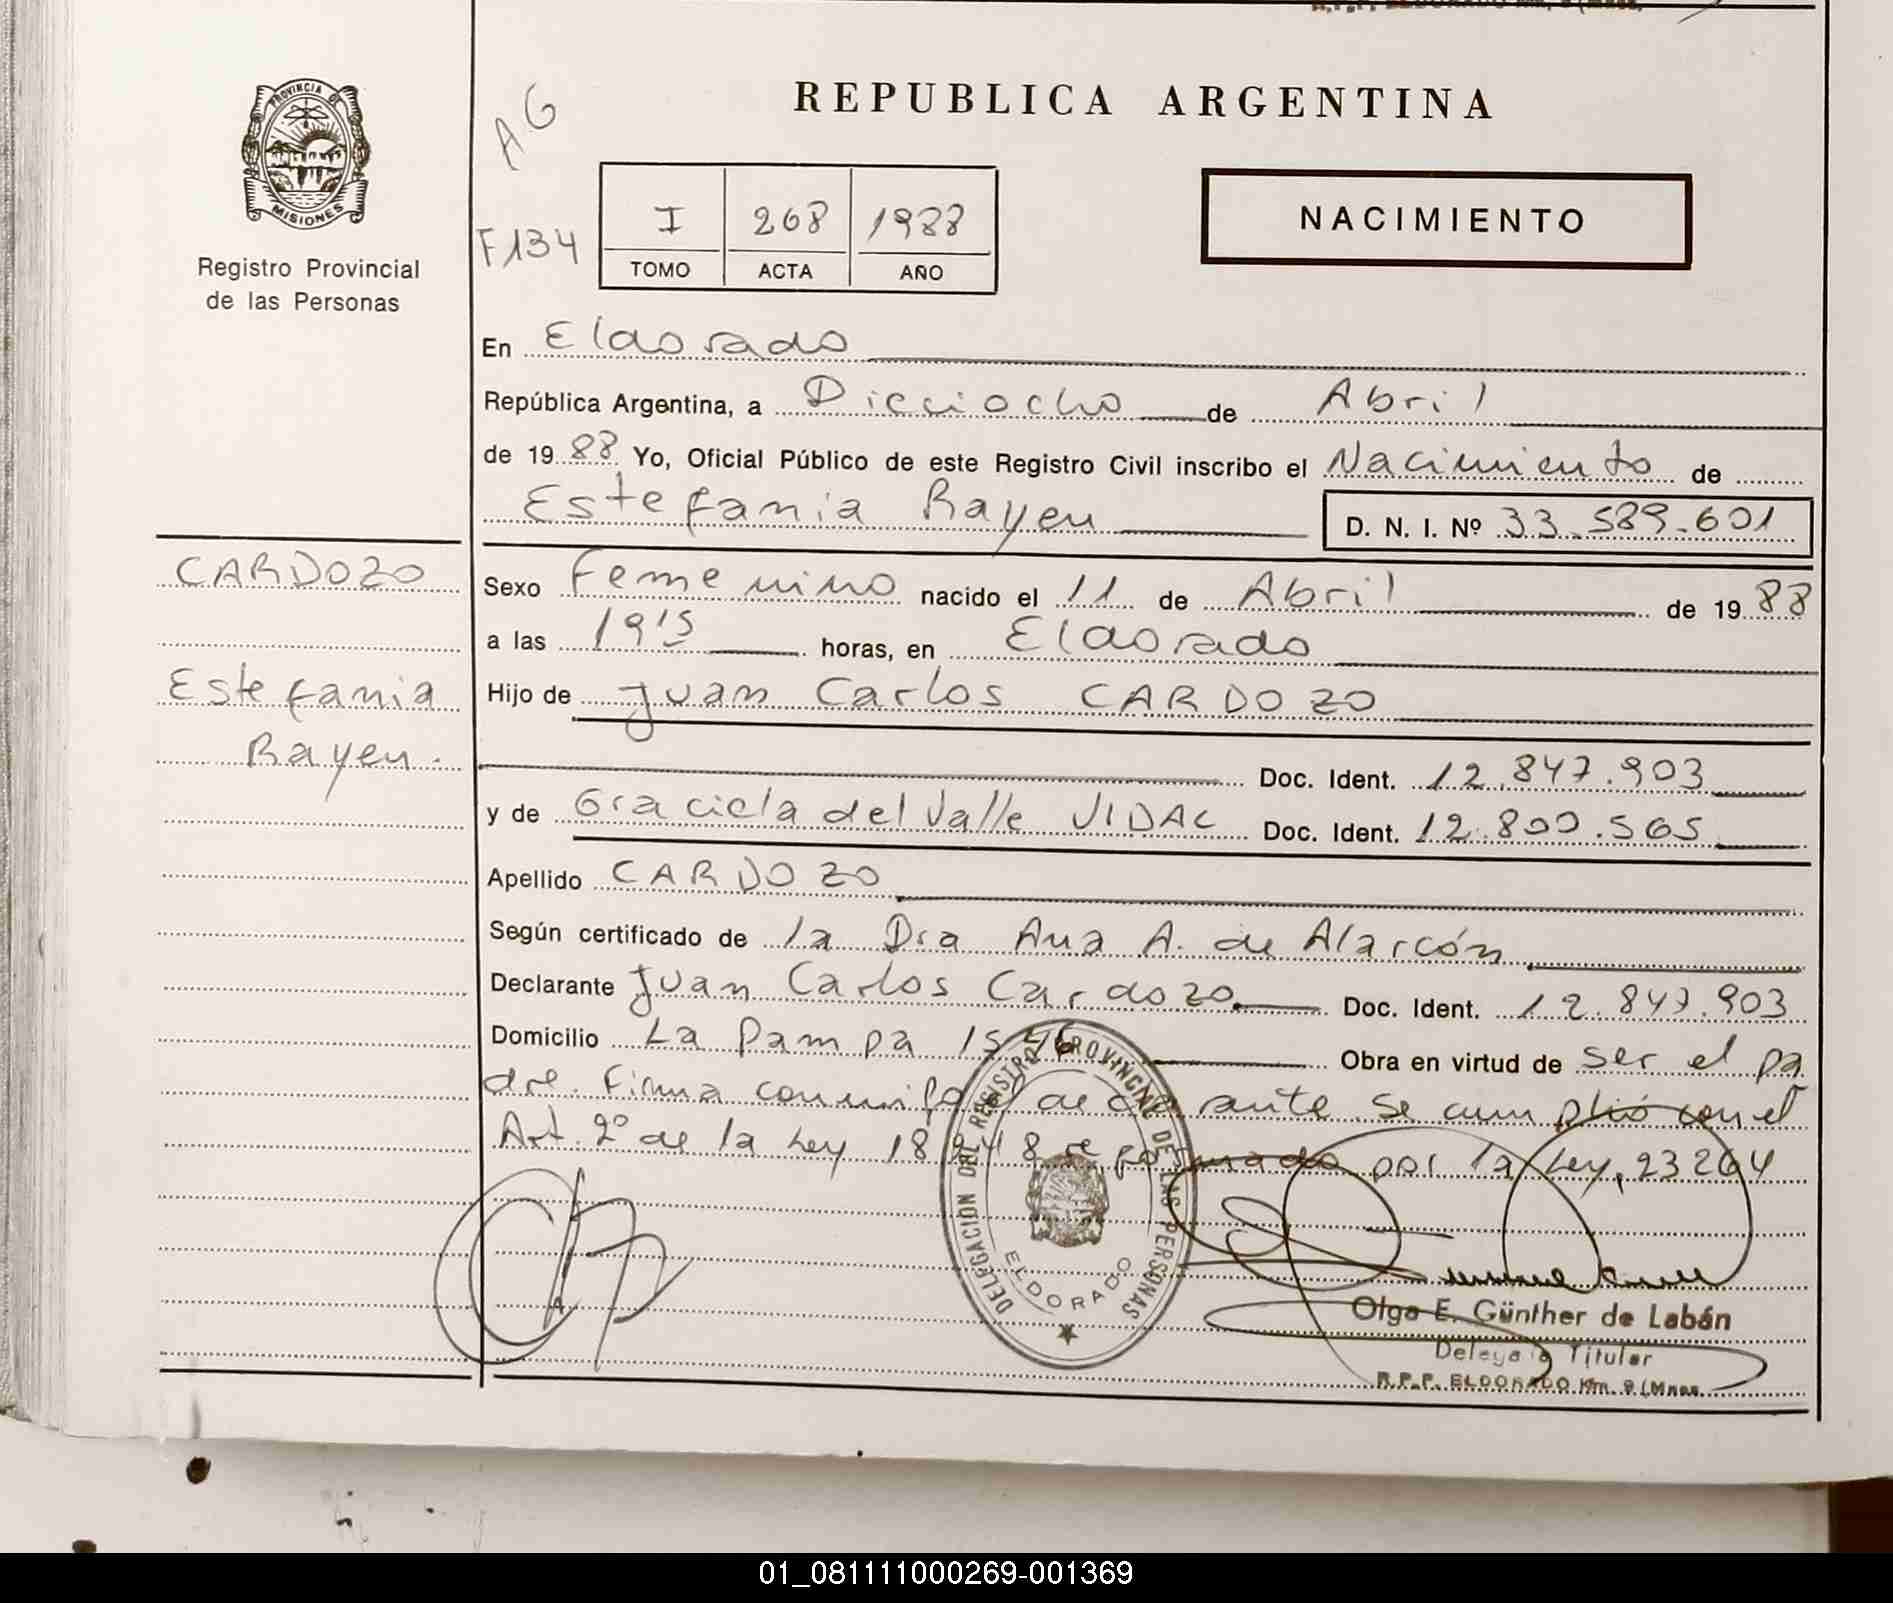 REPUBLICA ARGENTINA
PROVINCIA DE
MISIONES
Registro Provincial
de las Personas
AG
F134
I 268 1988
TOMO ACTA AÑO
NACIMIENTO
En Eldorado
República Argentina, a Dieciocho de Abril
de 1988 Yo, Oficial Público de este Registro Civil inscribo el Nacimiento de
Estefania Rayen D. N. I. Nº 33.589.601
CARDOZO
Estefania
Rayen.
Sexo Femenino nacido el 11 de Abril de 1988
a las 19'15 horas, en Eldorado
Hijo de Juan Carlos CARDOZO
Doc. Ident. 12.847.903
y de Graciela del Valle VIDAL Doc. Ident. 12.800.565
Apellido CARDOZO
Según certificado de la Dra Ana A. de Alarcón
Declarante Juan Carlos Cardozo Doc. Ident. 12.847.903
Domicilio La Pampa Obra en virtud de ser el pa
dre. Firma conmigo el declarante se cumplió con el
Art. 2º de la Ley 18248 reformado por la Ley, 23264
DELEGACION DEL REGISTRO PROVINCIAL DE LAS PERSONAS
ELDORADO
Olga E. Günther de Labán
Delegada Titular
R.P.P. ELDORADO Km. 9 (Mnes.
01_081111000269-001369